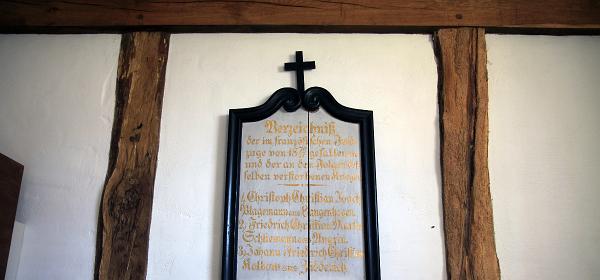 Verzeichniß
der im französischen Feld-
zuge von 18 gefallenen
und der an den Folgen des-
selben verstorbenen Krieger
1. Christoph Christian
aus Langenhagen.
2. Friedrich Christian
aus
3. Johann Friedrich Christian
aus